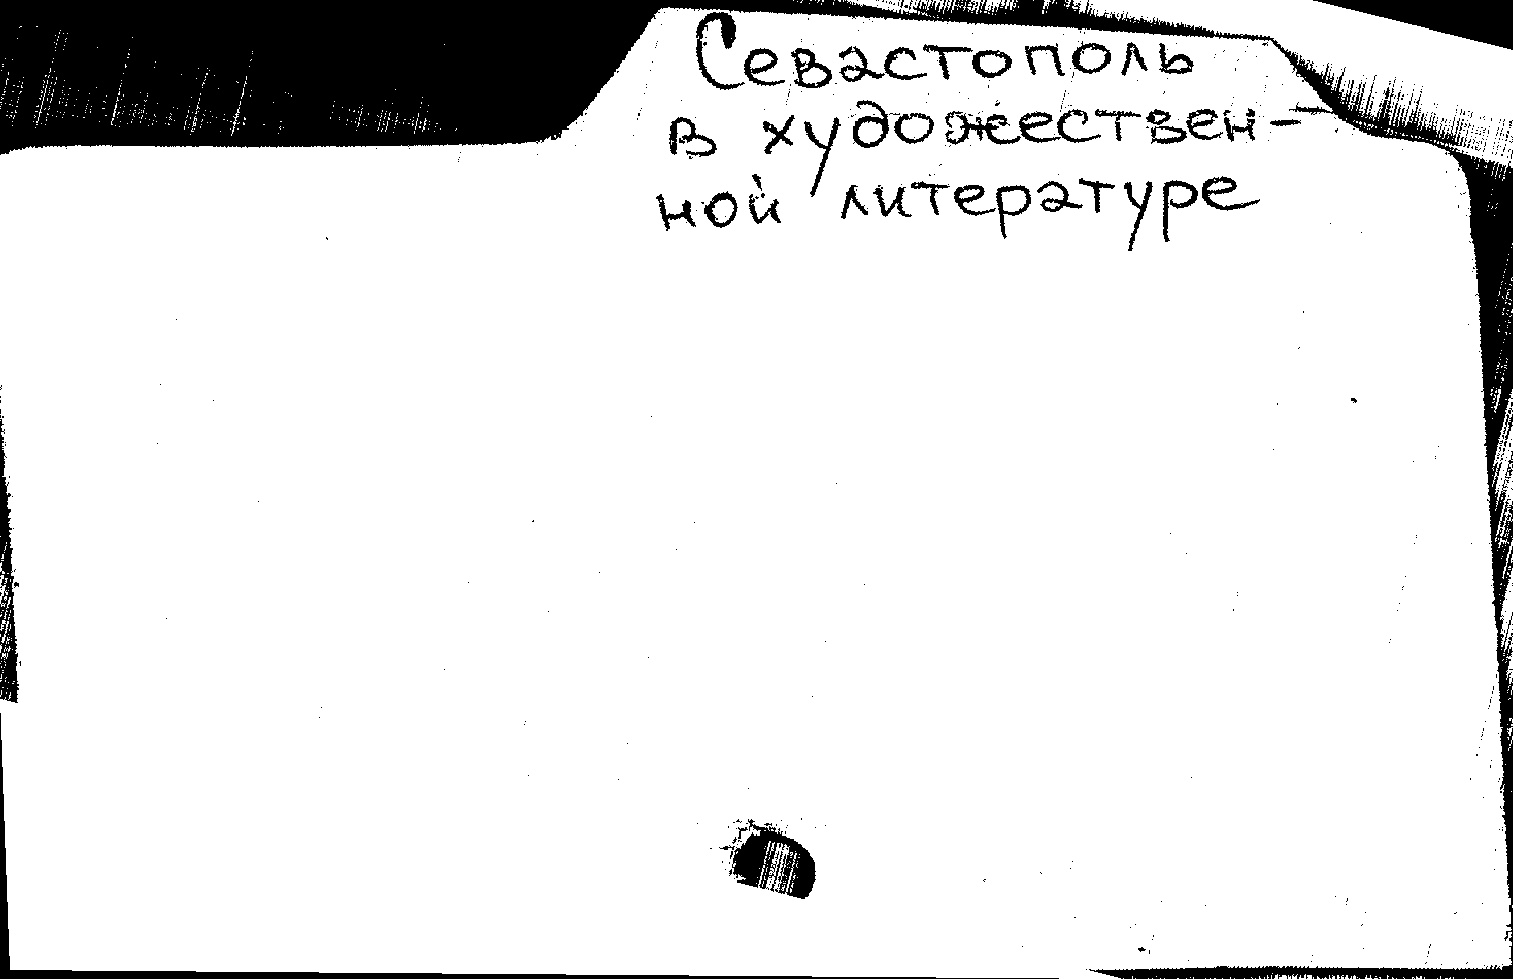 Севастополь
в художествен-
ной литературе